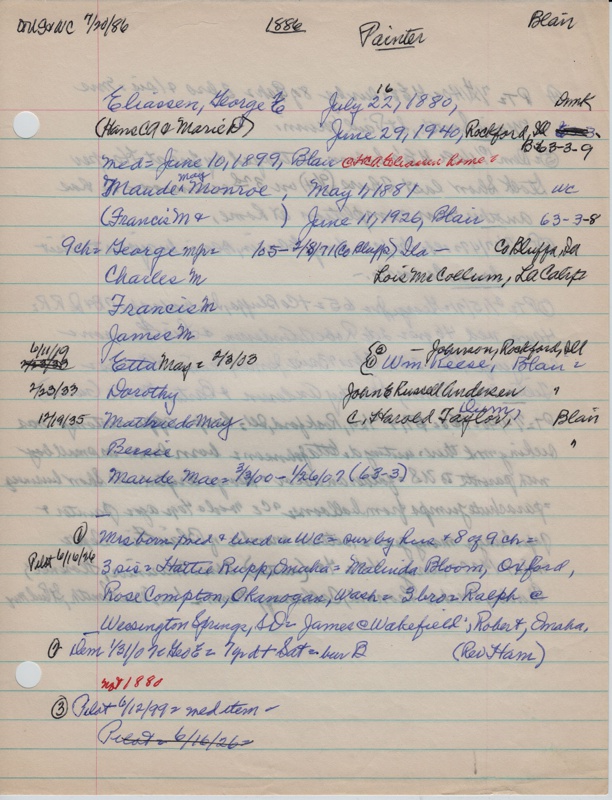 7/20/86 1886 Painter Blair
16
Eliassen, George E July 22, 1880, Dmk
(Hans CA & Marie D) June 29, 1940, Rockford, Ill
63-3-9
med = June 10, 1899, Blair @ HCA Eliassen home =
may
Maude Monroe, May 1, 1881 WC
(Francis M & ) June 11, 1926, Blair 63-3-8
9ch = George = 105 - 2/8/71 (Co Bluffs) Ia - Co Bluffs, Ia
Charles M Lois McCollum, La Calif
Francis M
James M
6/11/19 - Johnson, Rockford, Ill
Etta May = 2/3/03 Wm Reese, Blair =
2/23/33 Dorothy John E Russell Andersen "
12/9/35 Mathieda May C. Harold Taylor, Blair
Bessie "
Maude Mae = 3/3/00 - 1/26/07 (63-3)
① Mrs born med & lived in WC = sur by hus & 8 of 9 ch =
Pilot 6/16/26 3 sis = Hattie Rupp, Omaha = Malinda Bloom, Oxford,
Rose Compton, Okanogan, Wash = 3 bro = Ralph @
Wessington Springs, S.D = James @ Wakefield, Robert, Omaha,
(Rev Ham)
not 1880
③ Pilot 6/12/99 = med item =
Pilot = 6/16/26 =